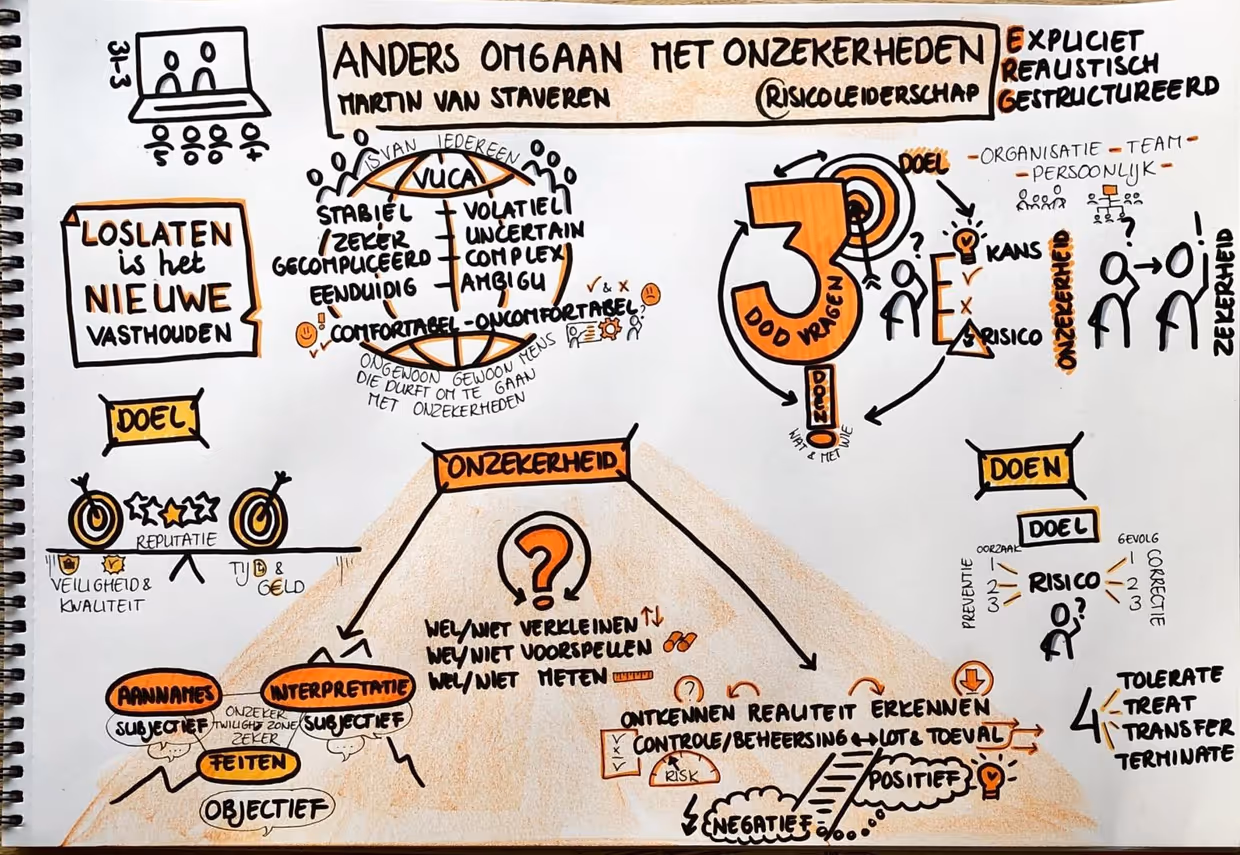 31-3
500+
ANDERS OMGAAN MET ONZEKERHEDEN
MARTIN VAN STAVEREN
RISICOLEIDERSCHAP
EXPLICIET
REALISTISCH
GESTRUCTUREERD
LOSLATEN
is het
NIEUWE
VASTHOUDEN
IS VAN IEDEREEN
VUCA
STABIEL - VOLATIEL
ZEKER - UNCERTAIN
GECOMPLICEERD - COMPLEX
EENDUIDIG - AMBIGU
✓ & X
COMFORTABEL - ONCOMFORTABEL
ONGEWOON GEWOON MENS
DIE DURFT OM TE GAAN
MET ONZEKERHEDEN
3
DOD VRAGEN
DOEL
- ORGANISATIE - TEAM -
- PERSOONLIJK -
?
KANS
✓
X
RISICO
ONZEKERHEID
?
!
ZEKERHEID
DOEN
WAT & MET WIE
DOEL
REPUTATIE
VEILIGHEID &
KWALITEIT
TIJD &
G€LD
ONZEKERHEID
?
WEL/NIET VERKLEINEN
WEL/NIET VOORSPELLEN
WEL/NIET METEN
AANNAMES
SUBJECTIEF
INTERPRETATIE
SUBJECTIEF
ONZEKER
TWILIGHT ZONE
ZEKER
FEITEN
OBJECTIEF
?
ONTKENNEN REALITEIT ERKENNEN
CONTROLE/BEHEERSING ↔ LOT & TOEVAL
RISK
POSITIEF
NEGATIEF
DOEN
DOEL
OORZAAK
GEVOLG
PREVENTIE
1
2
3
RISICO
1
2
3
CORRECTIE
?
4
TOLERATE
TREAT
TRANSFER
TERMINATE